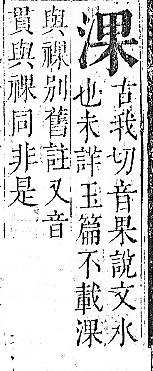 淉
古我切音果說文水
也未詳玉篇不載淉
與祼別舊註又音
貫與祼同非是